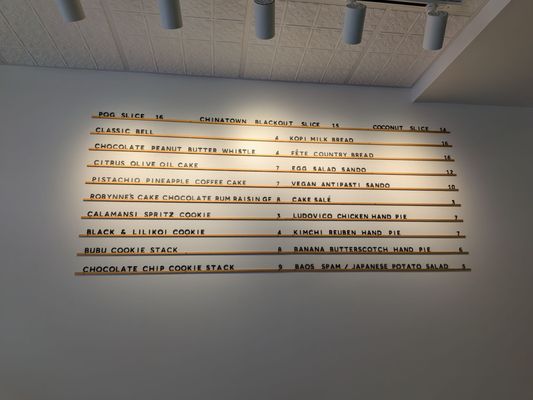 POG SLICE 16 CHINATOWN BLACKOUT SLICE 15 COCONUT SLICE 14
CLASSIC BELL 6 KOPI MILK BREAD 15
CHOCOLATE PEANUT BUTTER WHISTLE 6 FÊTE COUNTRY BREAD 14
CITRUS OLIVE OIL CAKE 7 EGG SALAD SANDO 12
PISTACHIO PINEAPPLE COFFEE CAKE 7 VEGAN ANTIPASTI SANDO 10
ROBYNNE'S CAKE CHOCOLATE RUM RAISIN GF 8 CAKE SALÉ
CALAMANSI SPRITZ COOKIE 3 LUDOVICO CHICKEN HAND PIE 7
BLACK & LILIKOI COOKIE 4 KIMCHI REUBEN HAND PIE 7
BUBU COOKIE STACK 8 BANANA BUTTERSCOTCH HAND PIE 6
CHOCOLATE CHIP COOKIE STACK 9 BAOS SPAM / JAPANESE POTATO SALAD 5